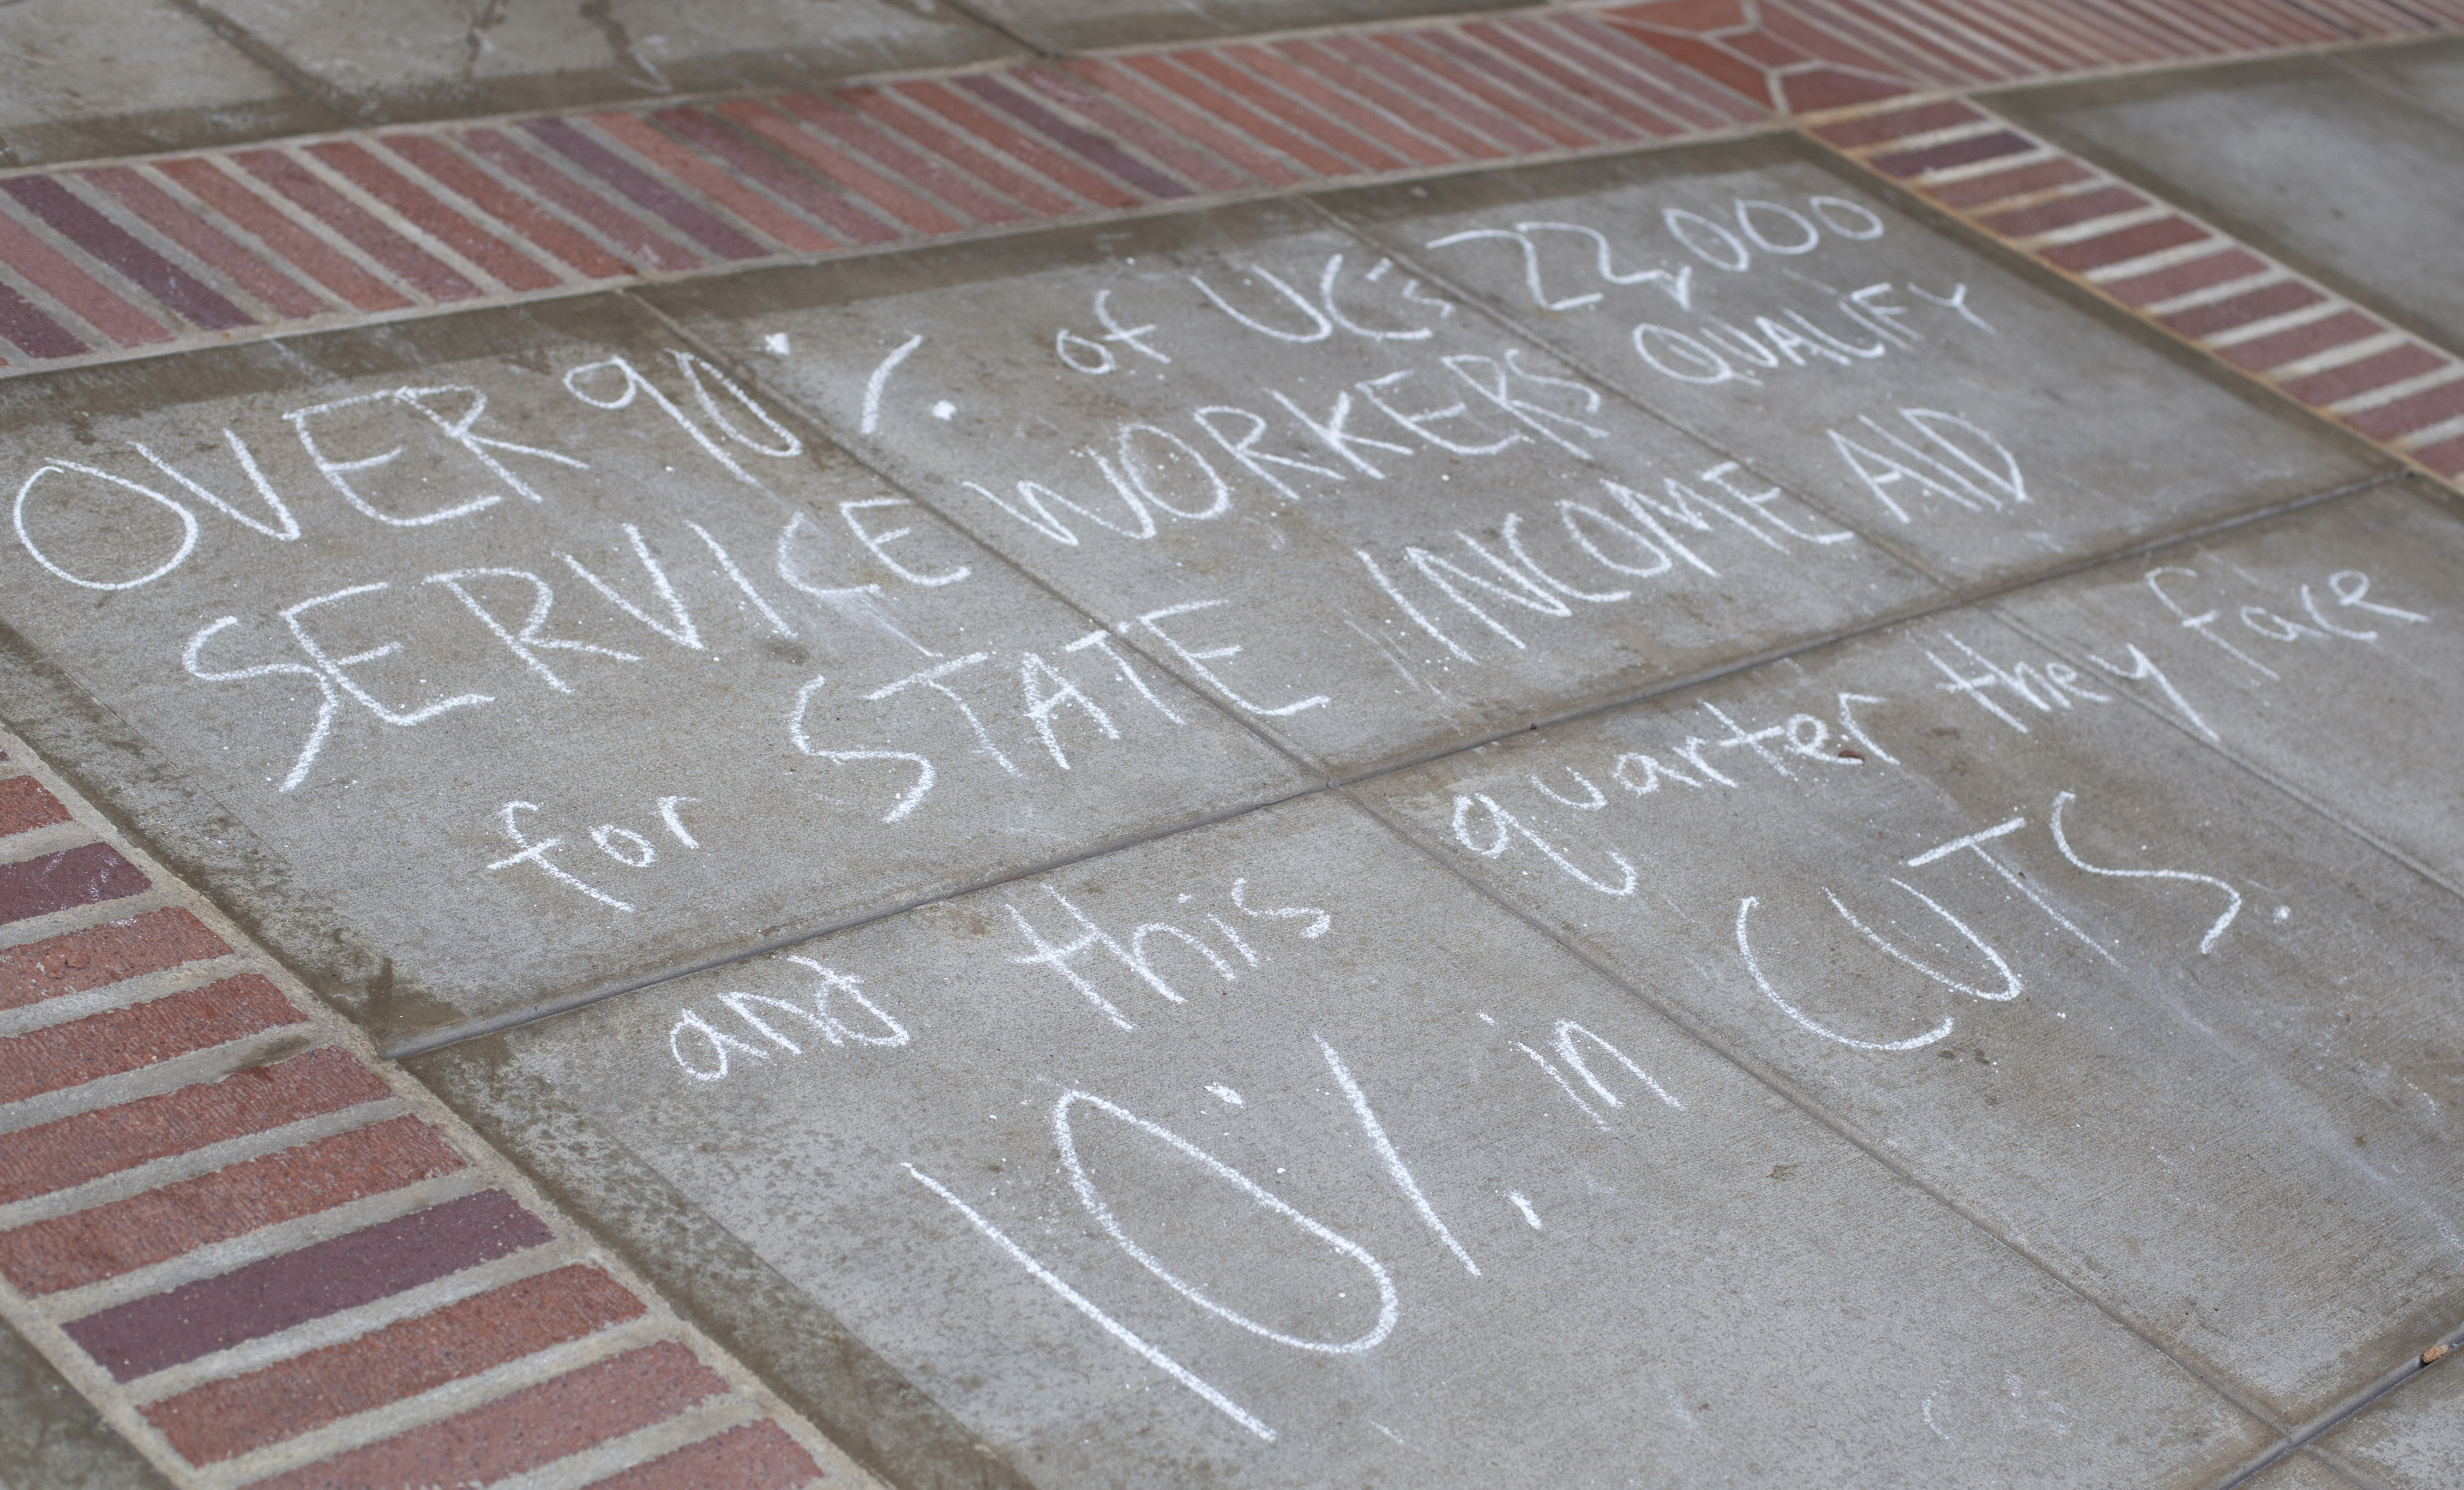 OVER 90% of UC's 22,000
SERVICE WORKERS QUALIFY
for STATE INCOME AID
and this quarter they face
10% in CUTS.